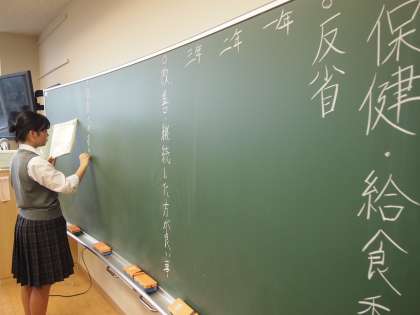 保健・給食委
○反省
一年
二年
三年
○改善 継続した方が良い事